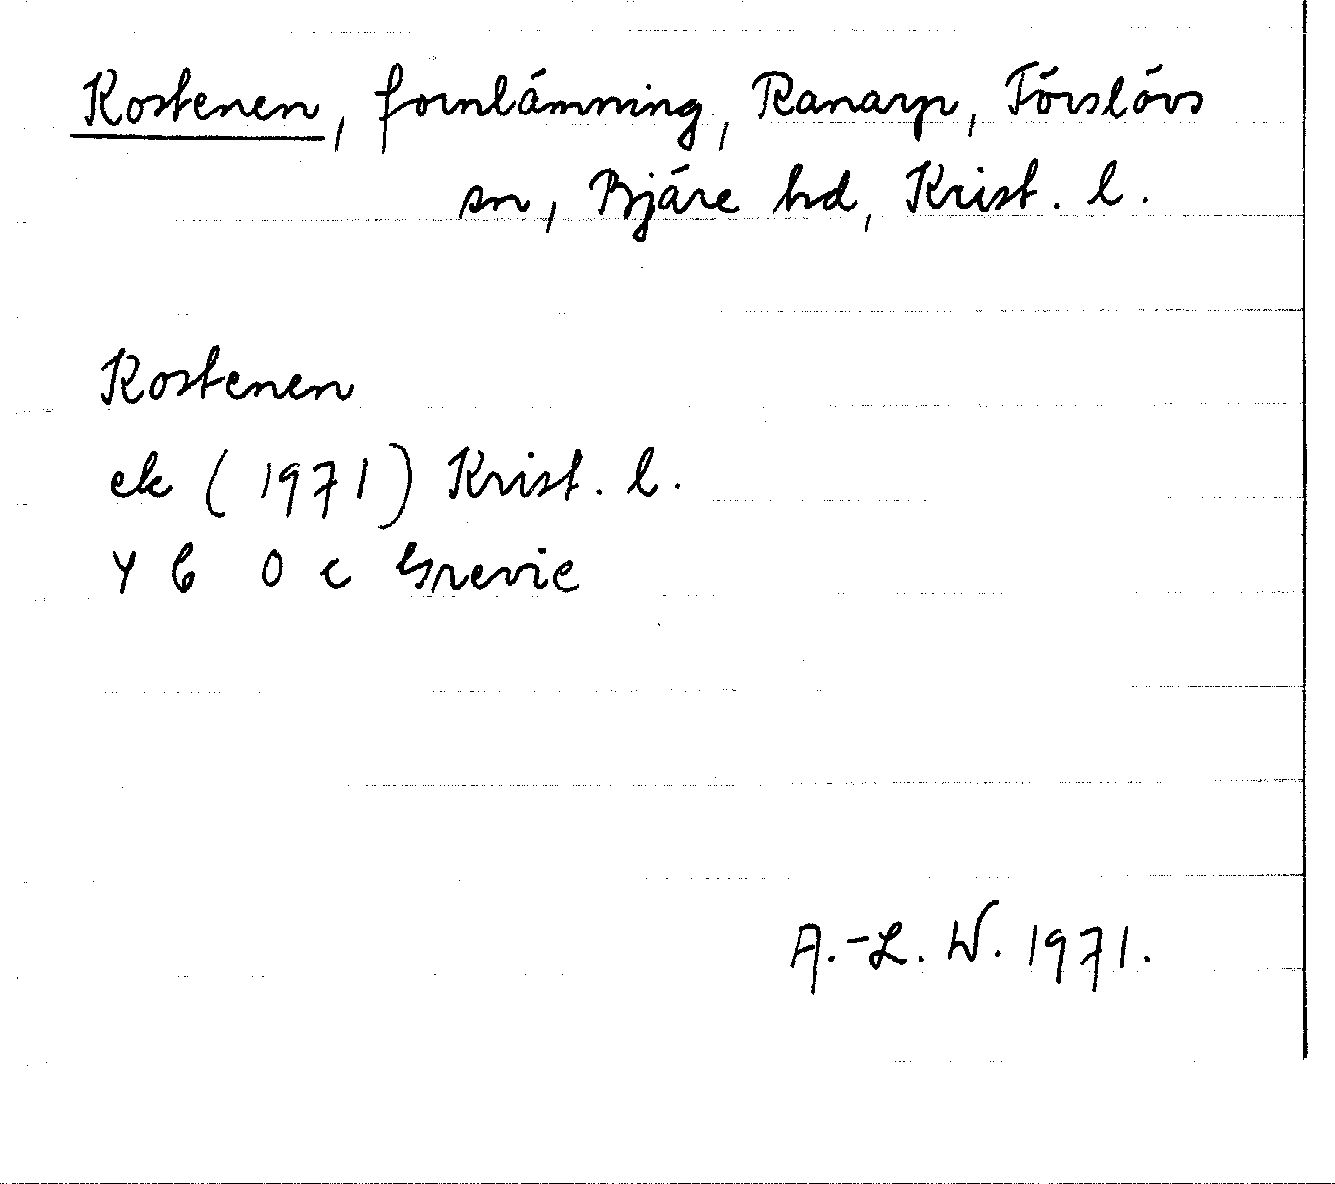 Rostenen, fornlämning, Ranarp, Förslövs
sn, Bjäre hd, Krist. l.
Rostenen
ek (1971) Krist. l.
4 C 0 c Grevie
A.-L. W. 1971.